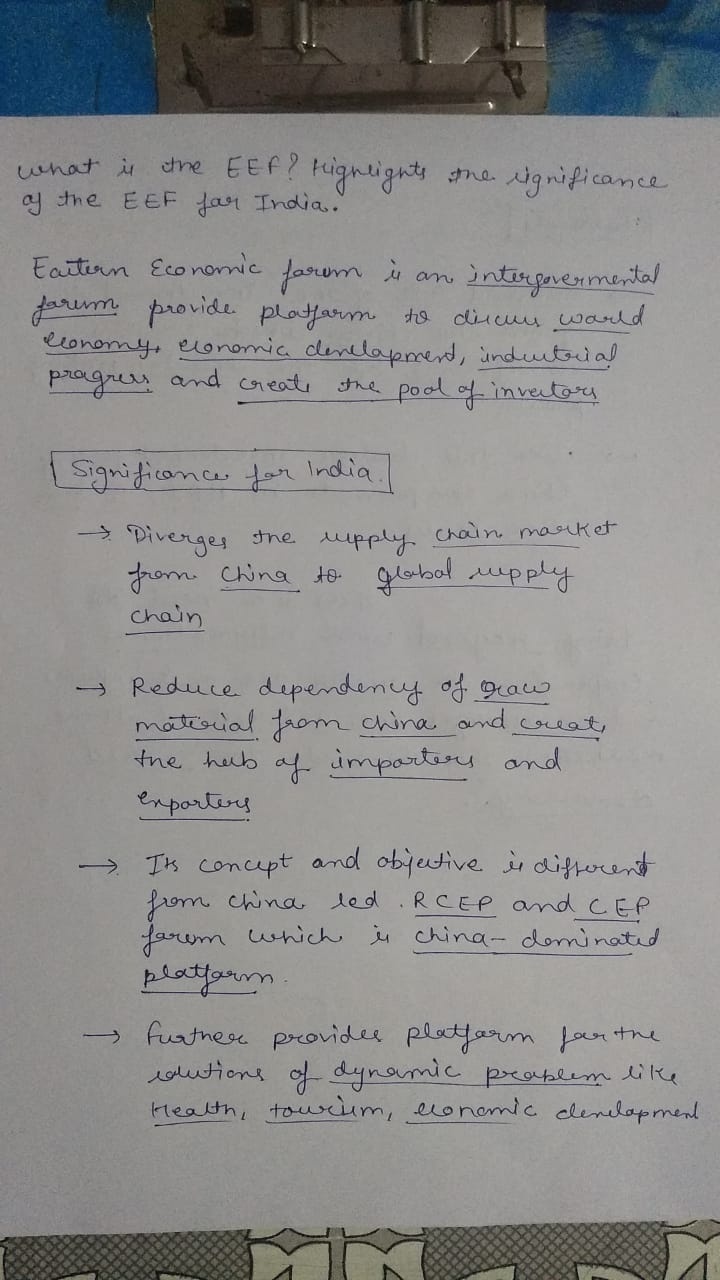 What is the EEF? Highlights the significance
of the EEF for India.
Eastern Economic forum is an intergovermental
forum provide platform to discuss world
economy, economic development, industrial
progress and create the pool of investors
Significance for India.
→ Diverges the supply chain market
from China to global supply
chain
→ Reduce dependency of raw
material from China and create
the hub of importers and
exporters
→ Its concept and objective is different
from China led . RCEP and CEP
forum which is China- dominated
platform.
→ Further provides platform for the
solutions of dynamic problem like
Health, tourism, economic development